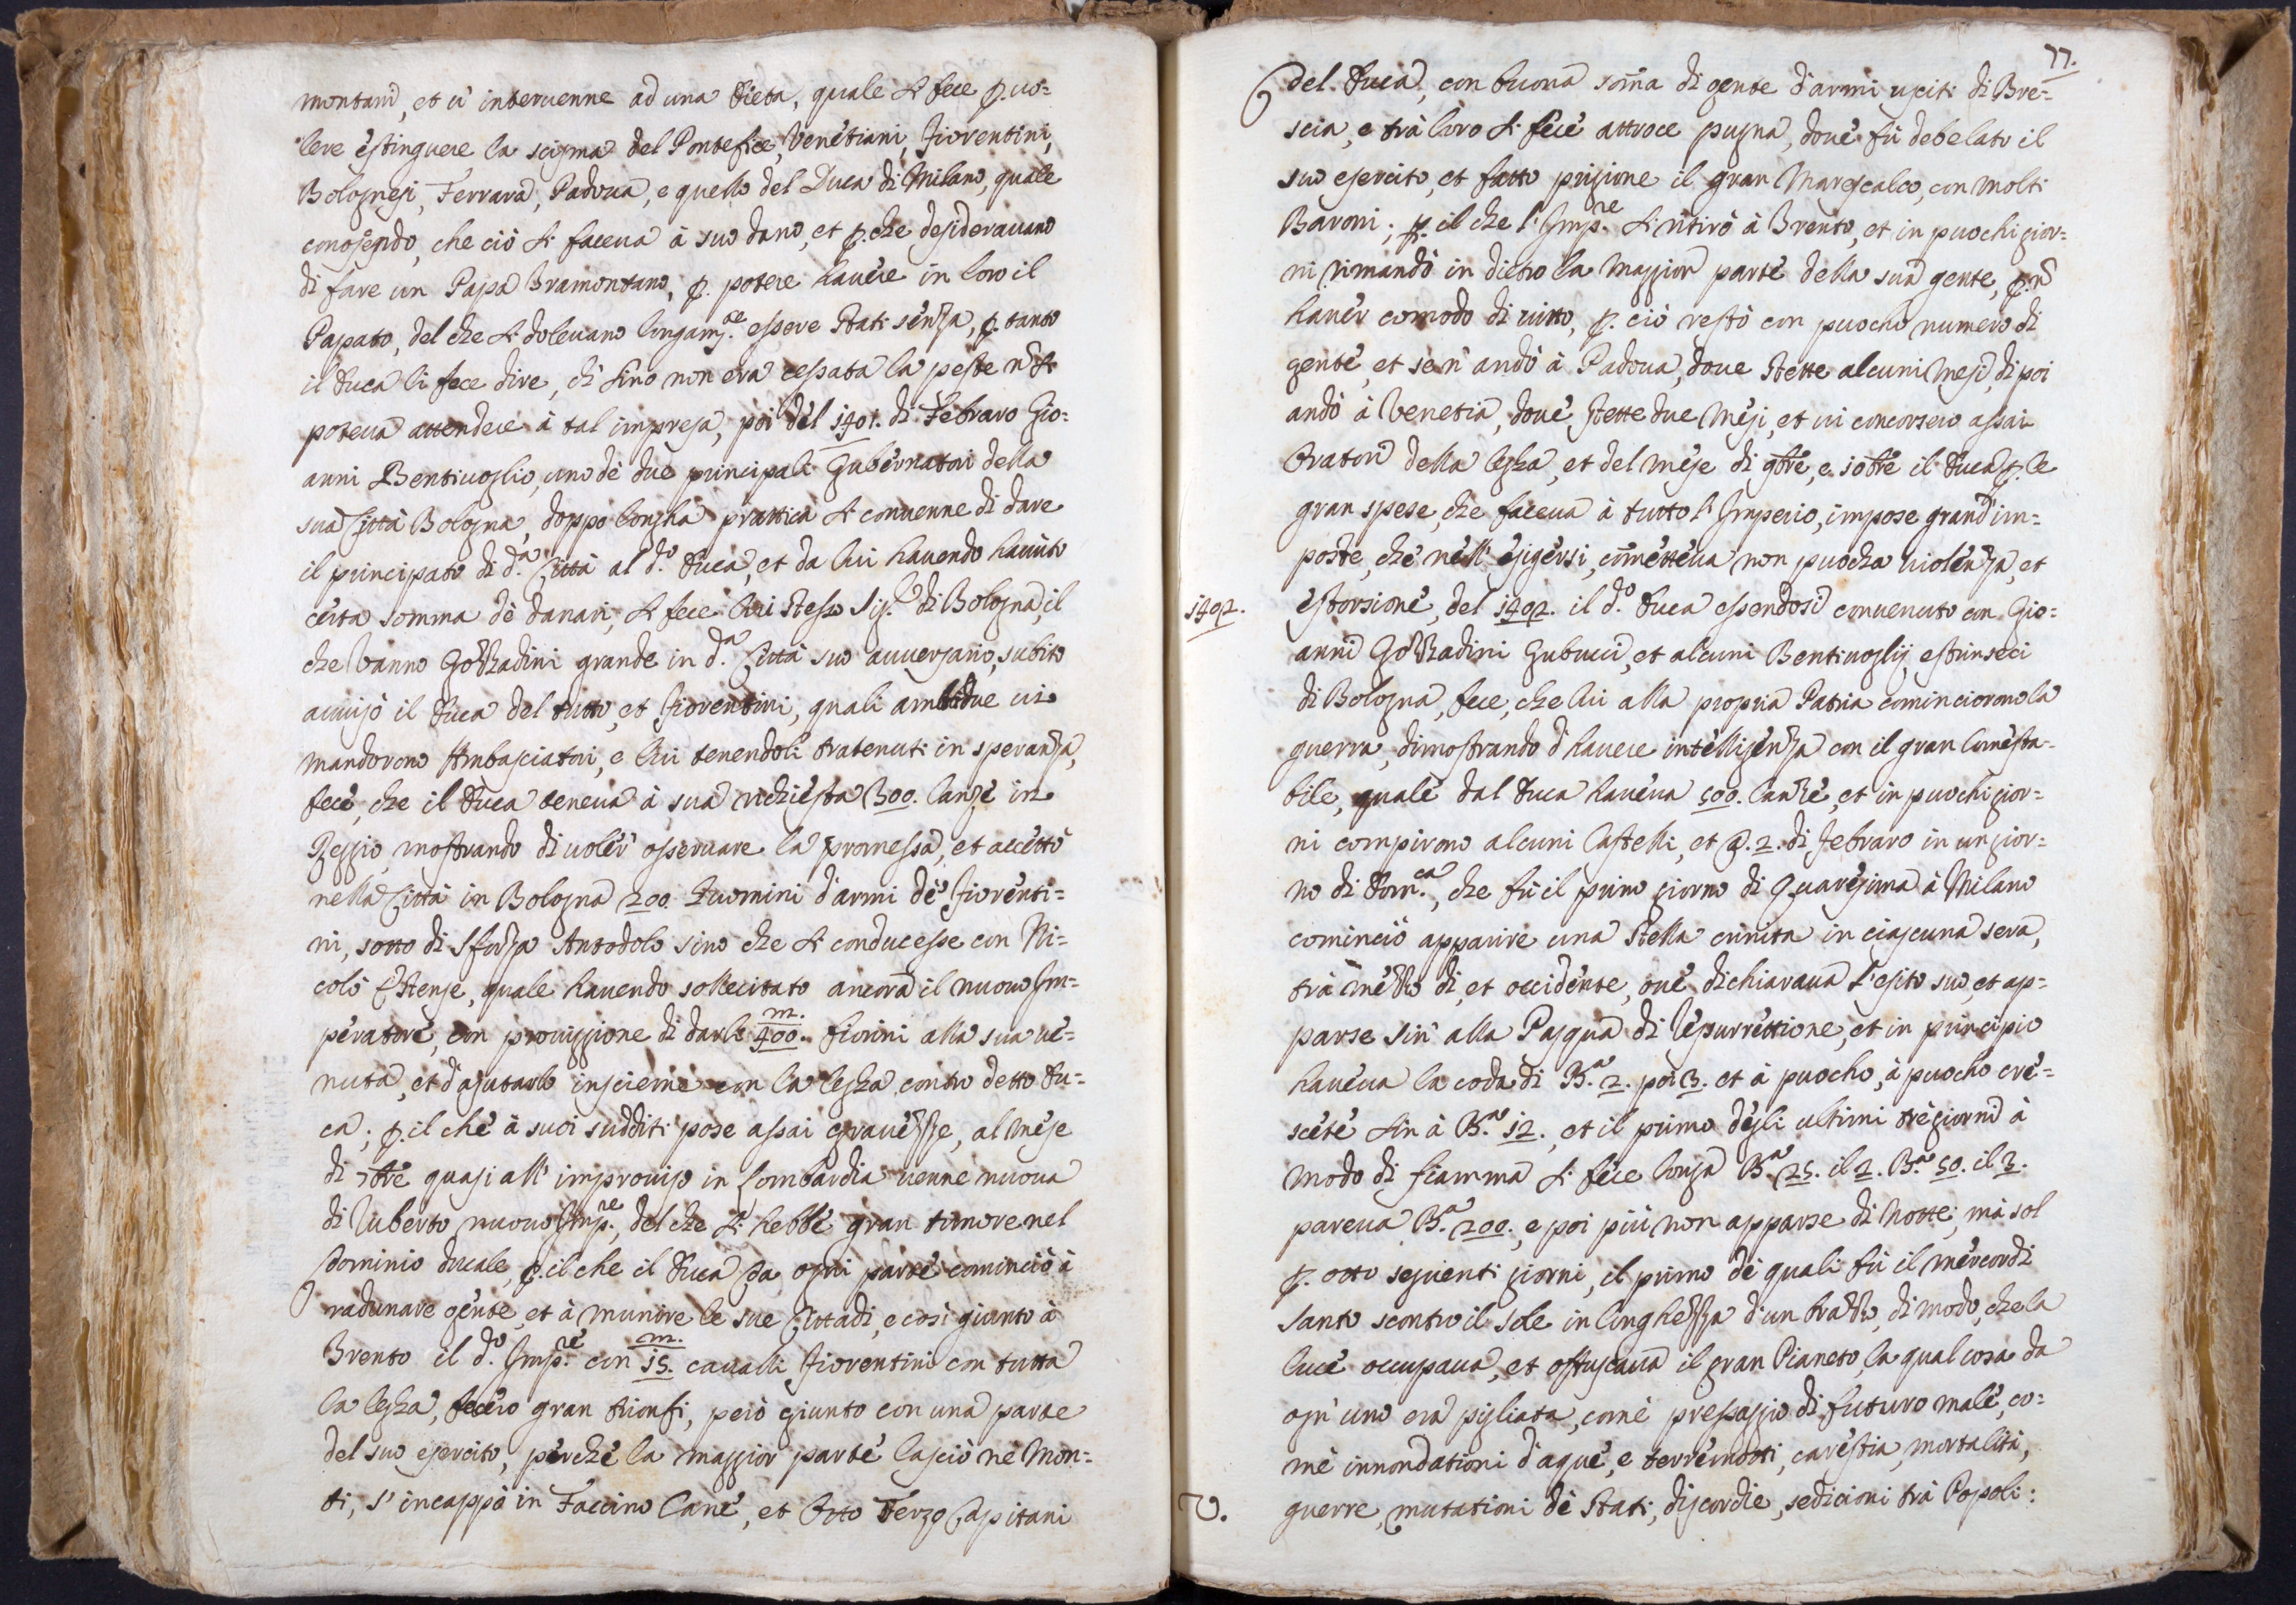 montani, et vi intervenne ad una Dieta, quale si fece p. vo=
lere estinguere la scisma del Pontefice, Venetiani, Fiorentini,
Bolognesi, Ferrara, Padova, e quello del Duca di Milano, quale
conoscendo, che ciò si faceva à suo dano, et p. che desideravano
di fare un Papa Tramontano, p. potere havere in loro il
Papato, del che si dolevano longam.te essere stati senza, p. tanto
il Duca li fece dire, ch' sino non era cessata la peste nõ si
poteva attendere à tal impresa, poi del 1401. di Febraro Gio=
anni Bentivoglio, uno dè due principali Gubernatori della
sua Città Bologna, doppo longha prattica si convenne di dare
il principato di d.a Città al d.o Duca, et da lui havendo havuto
certa somma dè danari, si fece lui stesso Sig.r di Bologna, il
che Vanno Gozzadini grande in d.a Città suo avversario, subito
avvisò il Duca del tutto, et Fiorentini, quali ambidue vi
mandorono Ambasciatori, e lui tenendoli tratenuti in speranza,
fece, che il Duca teneva à sua richiesta 300. lanze in
Reggio, mostrando di voler osservare la promessa, et accettò
nella Città in Bologna 200. Huomini d'armi dè Fiorenti=
ni, sotto di Sforza Antodolo sino che si conducesse con Ni=
colò Estense, quale havendo sollecitato ancora il nuovo Im=
peratore, con provissione di darli 400.m fiorini alla sua ve=
nuta, et d'ajutarlo insieme con la legha contro detto Du=
ca; p. il che à suoi sudditi pose assai gravezze, al mese
di 7bre quasi all' improviso in Lombardia venne nuova
di Ruberto nuovo Imp.re, del che si hebbe gran timore nel
Dominio ducale, p. il che il Duca da ogni parte cominciò à
radunare gente, et à munire le sue Cittadi, e così giunto à
Trento il d.o Imp.re con 15.m cavalli Fiorentini con tutta
la legha, fecero gran trionfi, però giunto con una parte
del suo esercito, perchè la maggior parte lasciò nè Mon=
ti, s' incappò in Faccino Cane, et Otto Terzo Capitani
77.
del Duca, con buona soma di gente d'armi usciti di Bre=
scia, e trà loro si fece attroce pugna, dove fù debelato il
suo esercito, et fatto prigione il gran Marescalco, con molti
Baroni; p. il che l' Imp.re si ritirò à Trento, et in puochi gior=
ni rimandò in dietro la maggior parte della sua gente, p. nõ
haver comodo di vitto, p. ciò restò con puocho numero di
gente, et se n' andò à Padova, dove stette alcuni Mesi, di poi
andò à Venetia, dove stette due Mesi, et vi concorsero assai
Oratori della legha, et del mese di 9bre, e 10bre il Duca p. le
gran spese, che faceva à tutto l' Imperio, impose grandi im=
poste, che nell' esigersi, cometteva non puocha violenza, et
1402.
estorsione, del 1402. il d.o Duca essendosi convenuto con Gio=
anni Gozzadini Gubucci, et alcuni Bentivoglij estrinseci
di Bologna, fece, che lui alla propria Patria cominciorono la
guerra, dimostrando d' havere intelligenza con il gran Contesta=
bile, quale dal Duca haveva 500. lanze, et in puochi gior=
ni compirono alcuni Castelli, et @. 2. di Febraro in un gior=
no di Dom.ca, che fù il primo giorno di Quaresima à Milano
cominciò apparire una stella crinita in ciascuna sera,
trà mezzo dì, et occidente, ove dichiarava l' esito suo, et ap=
parse sin' alla Pasqua di Resurrettione, et in principio
haveva la coda di B.a 2. poi 3. et à puocho, à puocho cre=
scete sin à B.a 12., et il primo degli ultimi trè giorni à
modo di fiamma si fece longa B.a 25. il 2. B.a 50. il 3.
pareva B.a 200., e poi più non apparse di Notte, mà sol
p. otto seguenti giorni, il primo dè quali fù il mercordì
santo scontro il sole in longhezza d'un brazzo, di modo, che la
luce occupava, et offuscava il gran Pianeto, la qual cosa da
ogn' uno era pigliata, come pressaggio di futuro male, co=
me innondationi d' aque, e terremotti, carestia, mortalità,
V. guerre, mutationi dè Stati, discordie, sedicioni trà Popoli: